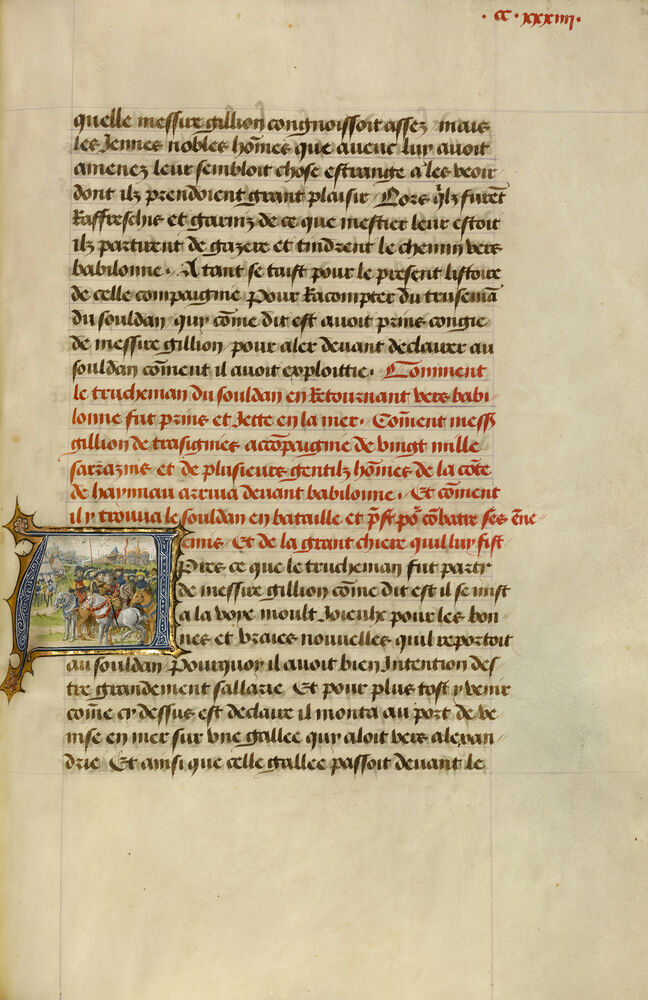 · CC · xxxiiii ·
quelle messire gillion congnoissoit assez mais
les Jennes nobles hõmes que avecuc luy avoit
amenez leur sembloit chose estrange a les veoir
dont ilz prendoient grant plaisir / Lors q̃lz furẽt
Raffreschis et garniz de ce que mestier leur estoit
ilz partirent de gazere et tindrent le chemin vers
babilonne · A tant se taist pour le present listoire
de celle compaignie Pour Racompter du truseman
du souldan quy cõme dit est avoit prins congie
de messire gillion pour aler devant declairer au
souldan cõment il avoit exploittie · Comment
le trucheman du souldan en Retournant vers babi-
lonne fut prins et Jette en la mer · Cõment mess
gillion de trasignies accõpaignie de vingt mille
sarrazins et de plusieurs gentilz hõmes de la cõte
de haynnau arriva devant babilonne · Et cõment
il y trouva le souldan en bataille et p̃st po͛ cõbatre ses ẽne-
emis / Et de la grant chiere quil luy fist
Apres ce que le trucheman fut party
de messire gillion cõme dit est il se mist
a la voye moult Joieulx pour les bon-
nes et vraies nouvelles quil reportoit
au souldan Pourquoy il avoit bien Intention des
tre grandement sallarie Et pour plus tost y venir
cõme cy dessus est declaire il monta au port de ve
nise en mer sur vne gallee quy aloit vers alexan-
drie / Et ainsi que celle gallee passoit devant le